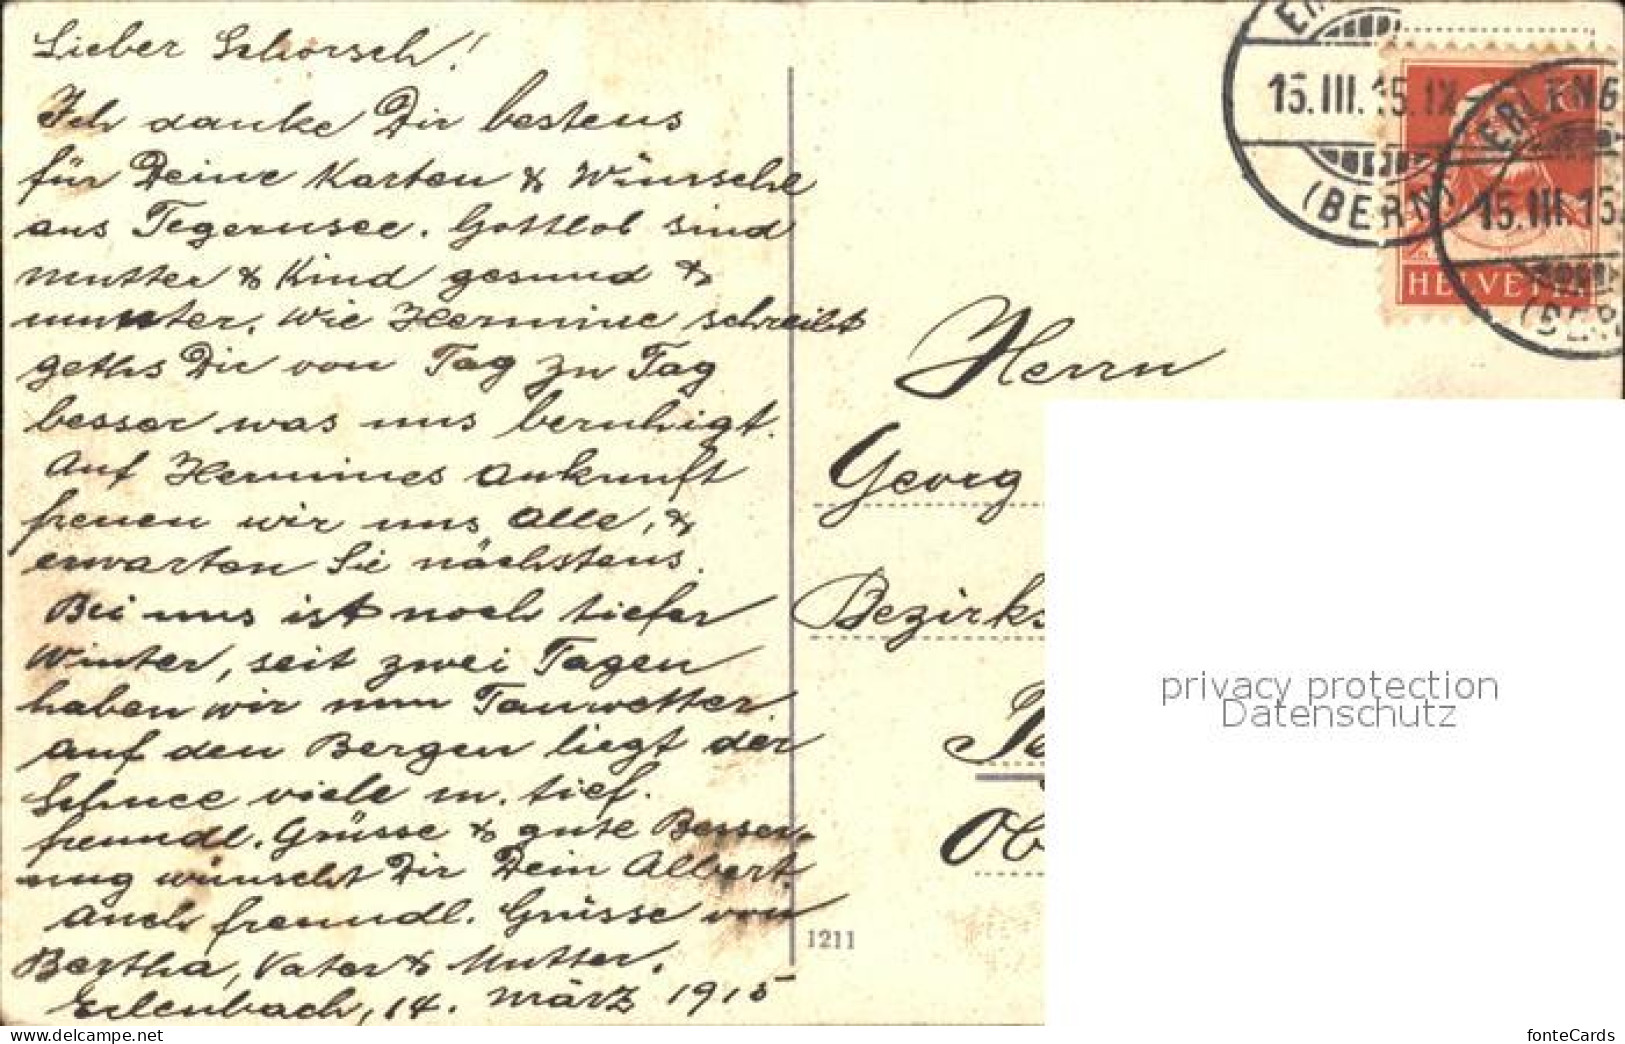 Lieber Schorsch!
Ich danke Dir bestens
für Deine Karten & Wünsche
aus Tegernsee. Gottlob sind
Mutter & Kind gesund &
munter. Wie Hermine schreibt
gehts Dir von Tag zu Tag
besser was uns beruhigt.
Auf Hermines Ankunft
freuen wir uns Alle, &
erwarten Sie nächstens.
Bei uns ist noch tiefer
Winter, seit zwei Tagen
haben wir nun Tauwetter.
Auf den Bergen liegt der
Schnee viele m. tief.
freundl. Grüsse & gute Besser-
ung wünscht Dir Dein Albert.
Auch freundl. Grüsse von
Bertha, Vater & Mutter.
Erlenbach, 14. März 1915
1211
15.III.15.IX
(BERN)
ERLENB
15.III.15.
(BER
HELVETIA
Herrn
Georg
Bezirks
Te
Ob
privacy protection
Datenschutz
fonteCards
delcampe.net